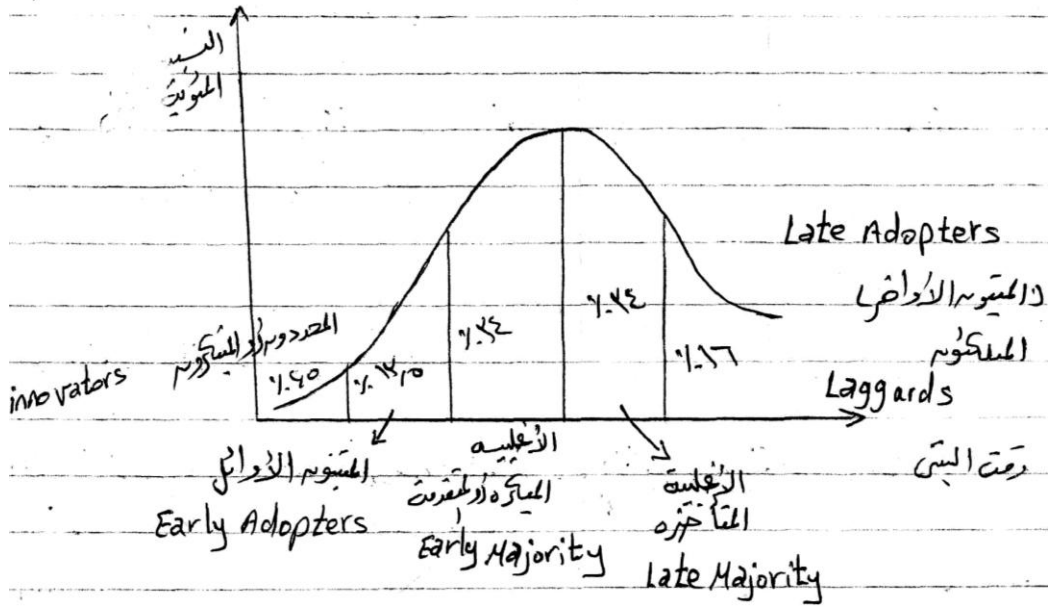 النسبة
المئوية
Late Adopters
(المتبنون الأواخر)
٪٣٤
٪٣٤
المتلكئون
المجددون أو المبتكرون
٪١٦
innovators
٪٢٫٥
٪١٣٫٥
Laggards
المتبنون الأوائل
Early Adopters
الأغلبية
المبكرة أو المتقدمة
Early Majority
الأغلبية
المتأخرة
Late Majority
وقت التبني